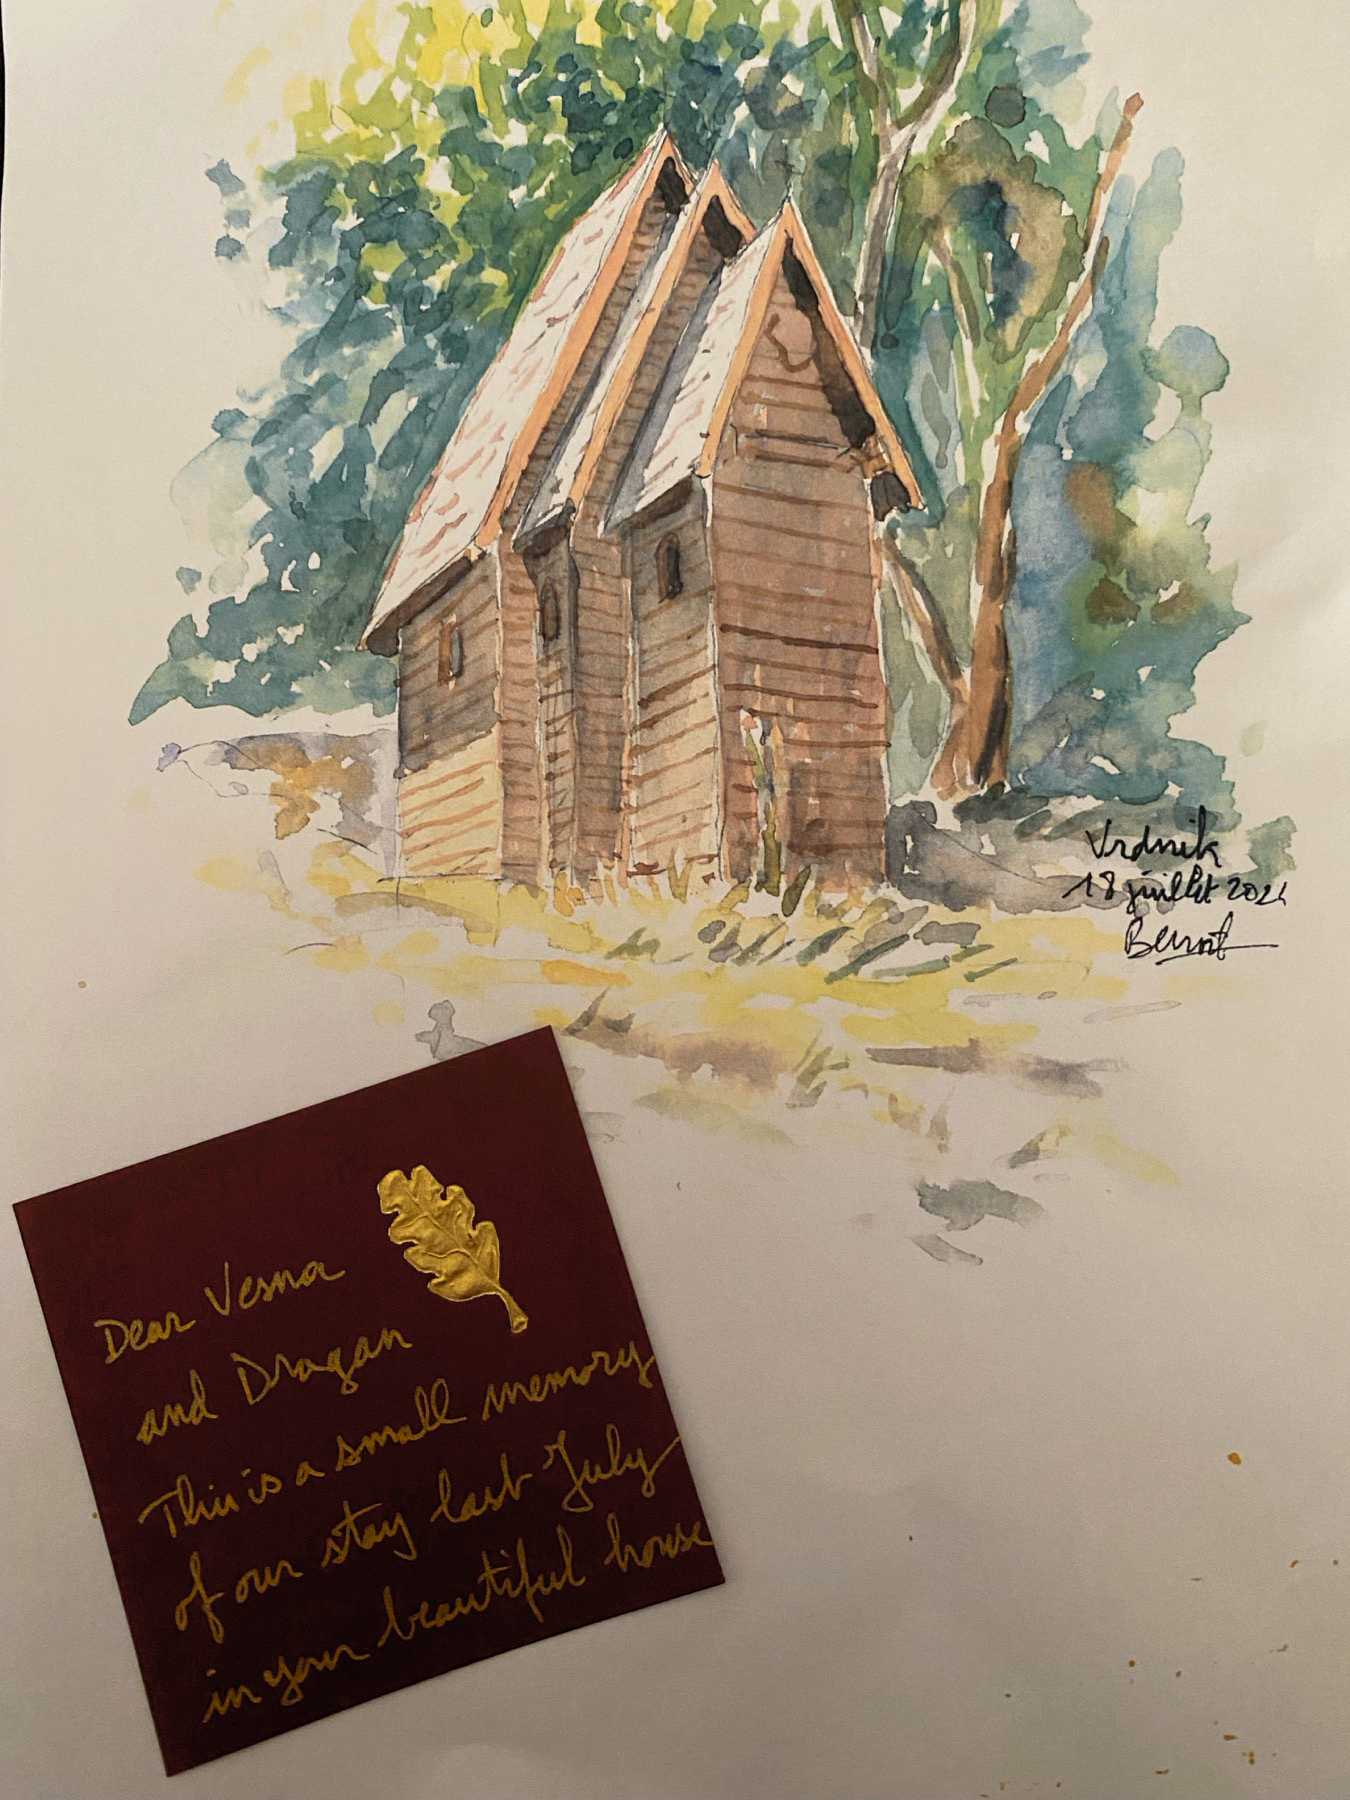 Vrdnik
18 juillet 2024
Dear Vesna
and Dragan
This is a small memory
of our stay last July
in your beautiful house